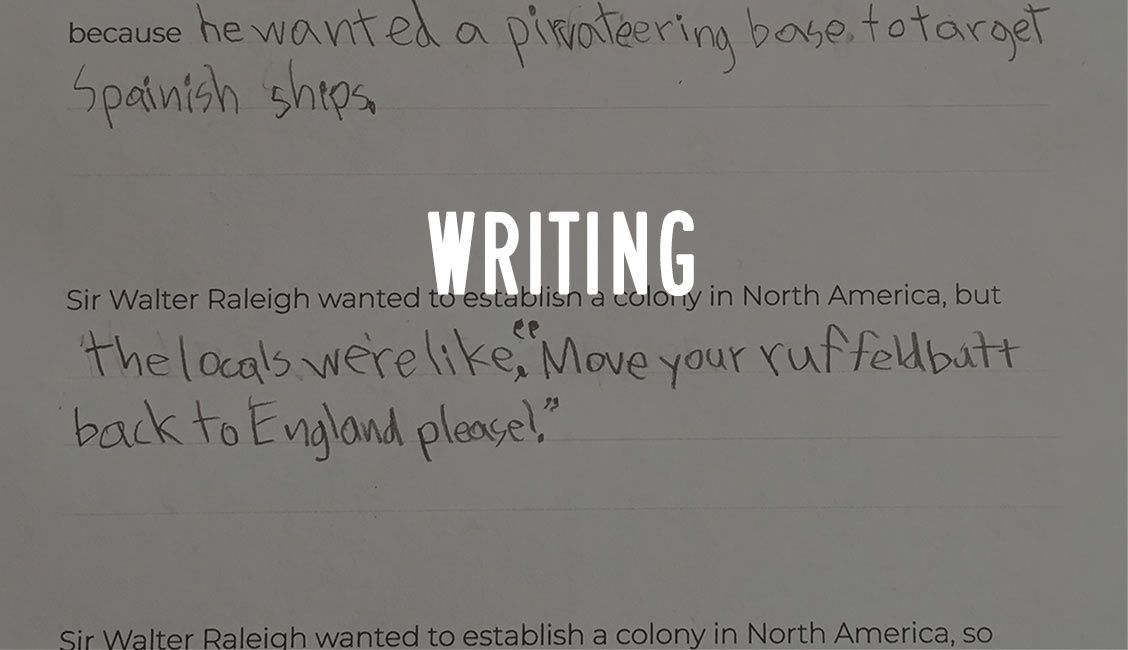 because he wanted a pirvateering base to target
Spainish ships.
WRITING
Sir Walter Raleigh wanted to establish a colony in North America, but
the locals were like, "Move your ruffeld butt
back to England please!."
Sir Walter Raleigh wanted to establish a colony in North America, so